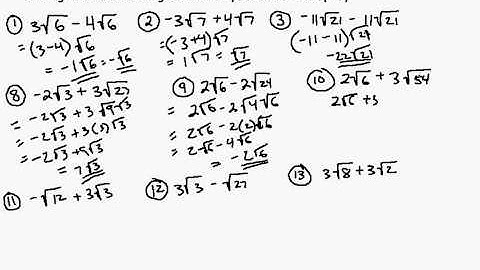 ① 3√6 - 4√6
= (3-4)√6
= -1√6 = -√6
② -3√7 + 4√7
= (-3+4)√7
= 1√7 = √7
③ -11√21 - 11√21
(-11-11)√21
-22√21
⑧ -2√3 + 3√27
= -2√3 + 3√9√3
= -2√3 + 3(3)√3
= -2√3 + 9√3
= 7√3
⑨ 2√6 - 2√24
= 2√6 - 2√4√6
= 2√6 - 2(2)√6
= 2√6 - 4√6
= -2√6
⑩ 2√6 + 3√54
2√6 + 3
⑪ -√12 + 3√3
⑫ 3√3 - √27
⑬ 3√8 + 3√2